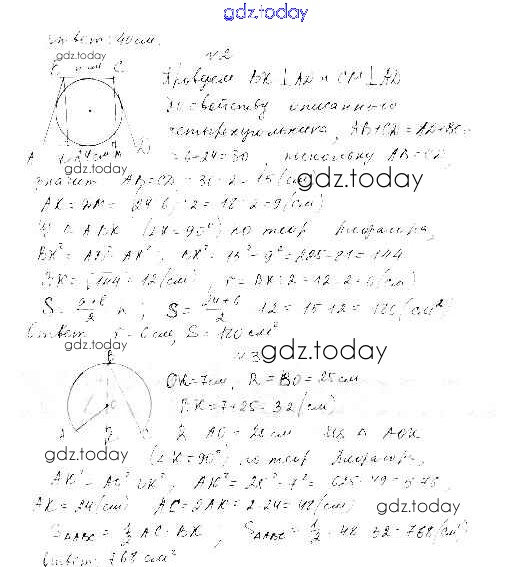 gdz.today
Ответ: 40 см.
gdz.today
№2
Проведем BK ⊥ AD и CM ⊥ AD
По свойству описанного
четырехугольника, AB+CD = AD+BC =
= 6+24=30, поскольку AB=CD,
значит AB=CD= 30:2=15 (см)
gdz.today
AK = DM = (24-6):2=18:2=9 (см)
Из Δ ABK (∠K=90°) по теор Пифагора,
BK² = AB² - AK², BK² = 15² - 9² = 225-81=144
BK = √144 = 12 (см), r = BK:2=12:2=6 (см)
S = a+b/2 · h; S = 24+6/2 · 12 = 15·12 = 180 (см²)
Ответ r = 6 см, S = 180 см²
gdz.today
№3
gdz.today
B
OK=7см, R = BO = 25 см
BK=7+25=32 (см)
AO = 25 см Из Δ AOK
gdz.today
(∠K=90°) по теор Пифагора,
AK² = AO² - OK², AK² = 25² - 7² = 625-49=576
AK = 24 (см) AC=2AK=2·24=48 (см)
gdz.today
S ΔABC = 1/2 AC · BK; S ΔABC = 1/2 · 48 · 32 = 768 (см²)
Ответ: 768 см²
gdz.today